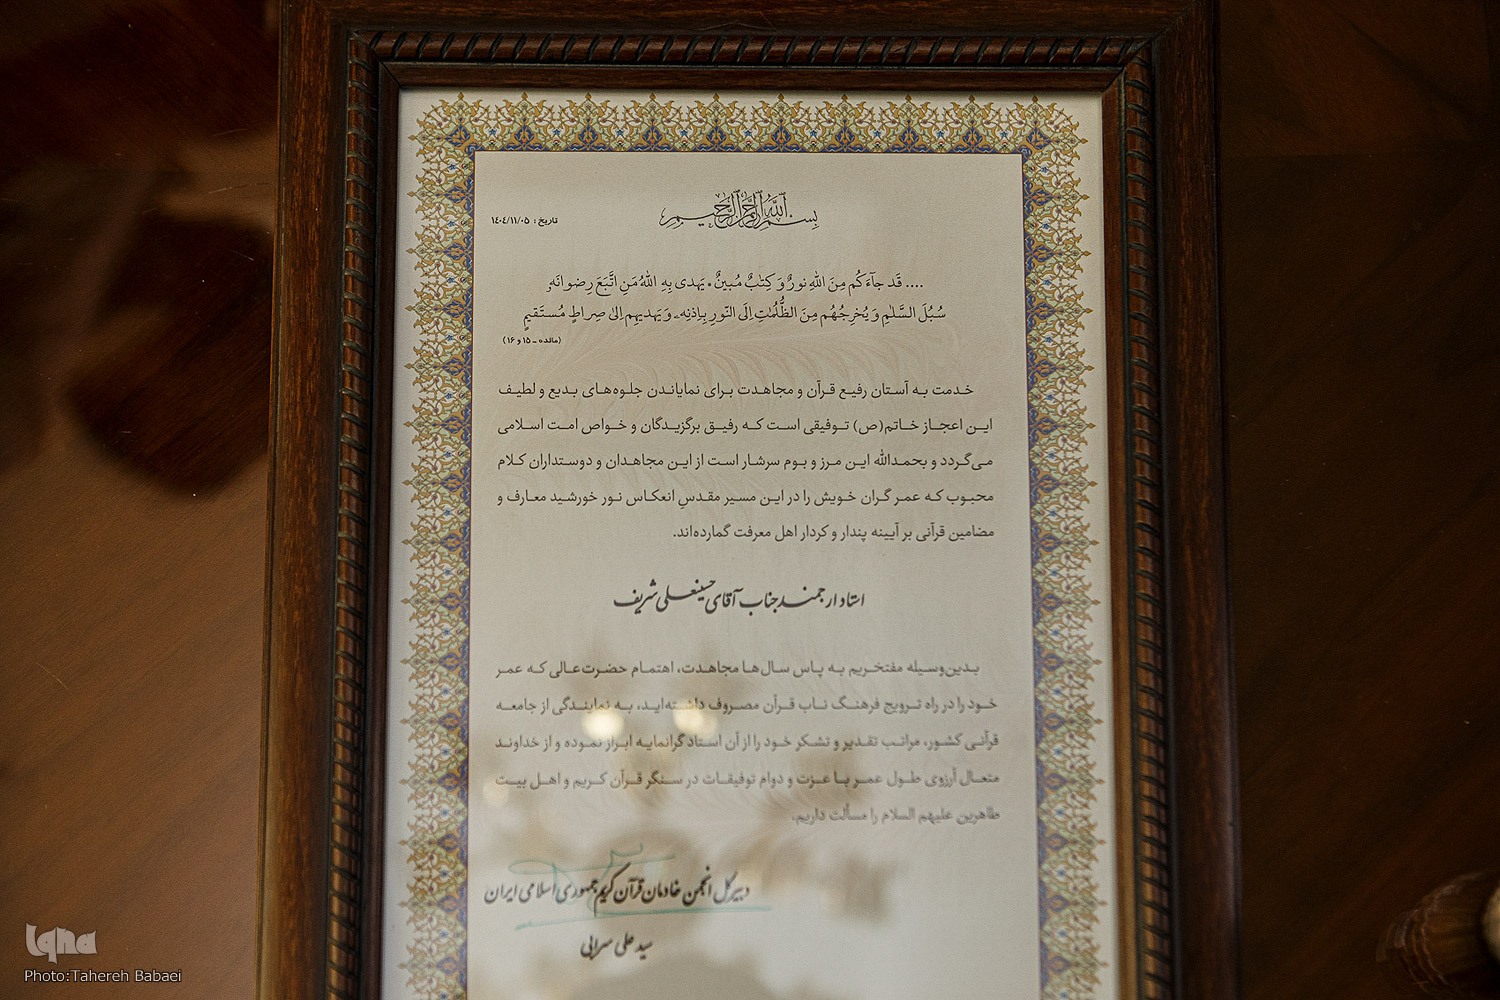 بسم الله الرحمن الرحیم
تاریخ: ۱۴۰۴/۱۱/۰۵
.... قَد جآءَكُم مِنَ اللّٰهِ نورٌ وَ كِتٰبٌ مُبينٌ • يَهدى بِهِ اللّٰهُ مَنِ اتَّبَعَ رِضوانَهٗ
سُبُلَ السَّلٰمِ وَ يُخرِجُهُم مِنَ الظُّلُمٰتِ اِلَى النّورِ بِاِذنِهٖ وَ يَهديهِم اِلىٰ صِراطٍ مُستَقيمٍ
(مائده - ۱۵ و ۱۶)
خدمت به آستان رفیع قرآن و مجاهدت برای نمایاندن جلوه‌های بدیع و لطیف
این اعجاز خاتم(ص) توفیقی است که رفیق برگزیدگان و خواص امت اسلامی
می‌گردد و بحمدالله این مرز و بوم سرشار است از این مجاهدان و دوستداران کلام
محبوب که عمر گران خویش را در این مسیر مقدسِ انعکاس نور خورشید معارف و
مضامین قرآنی بر آیینه پندار و کردار اهل معرفت گمارده‌اند.
استاد ارجمند جناب آقای حسینعلی شریف
بدین‌وسیله مفتخریم به پاس سال‌ها مجاهدت، اهتمام حضرت‌عالی که عمر
خود را در راه ترویج فرهنگ ناب قرآن مصروف داشته‌اید، به نمایندگی از جامعه
قرآنی کشور، مراتب تقدیر و تشکر خود را از آن استاد گرانمایه ابراز نموده و از خداوند
متعال آرزوی طول عمر با عزت و دوام توفیقات در سنگر قرآن کریم و اهل بیت
طاهرین علیهم السلام را مسألت داریم.
دبیرکل انجمن خادمان قرآن کریم جمهوری اسلامی ایران
سید علی سرابی
Iqna
Photo: Tahereh Babaei